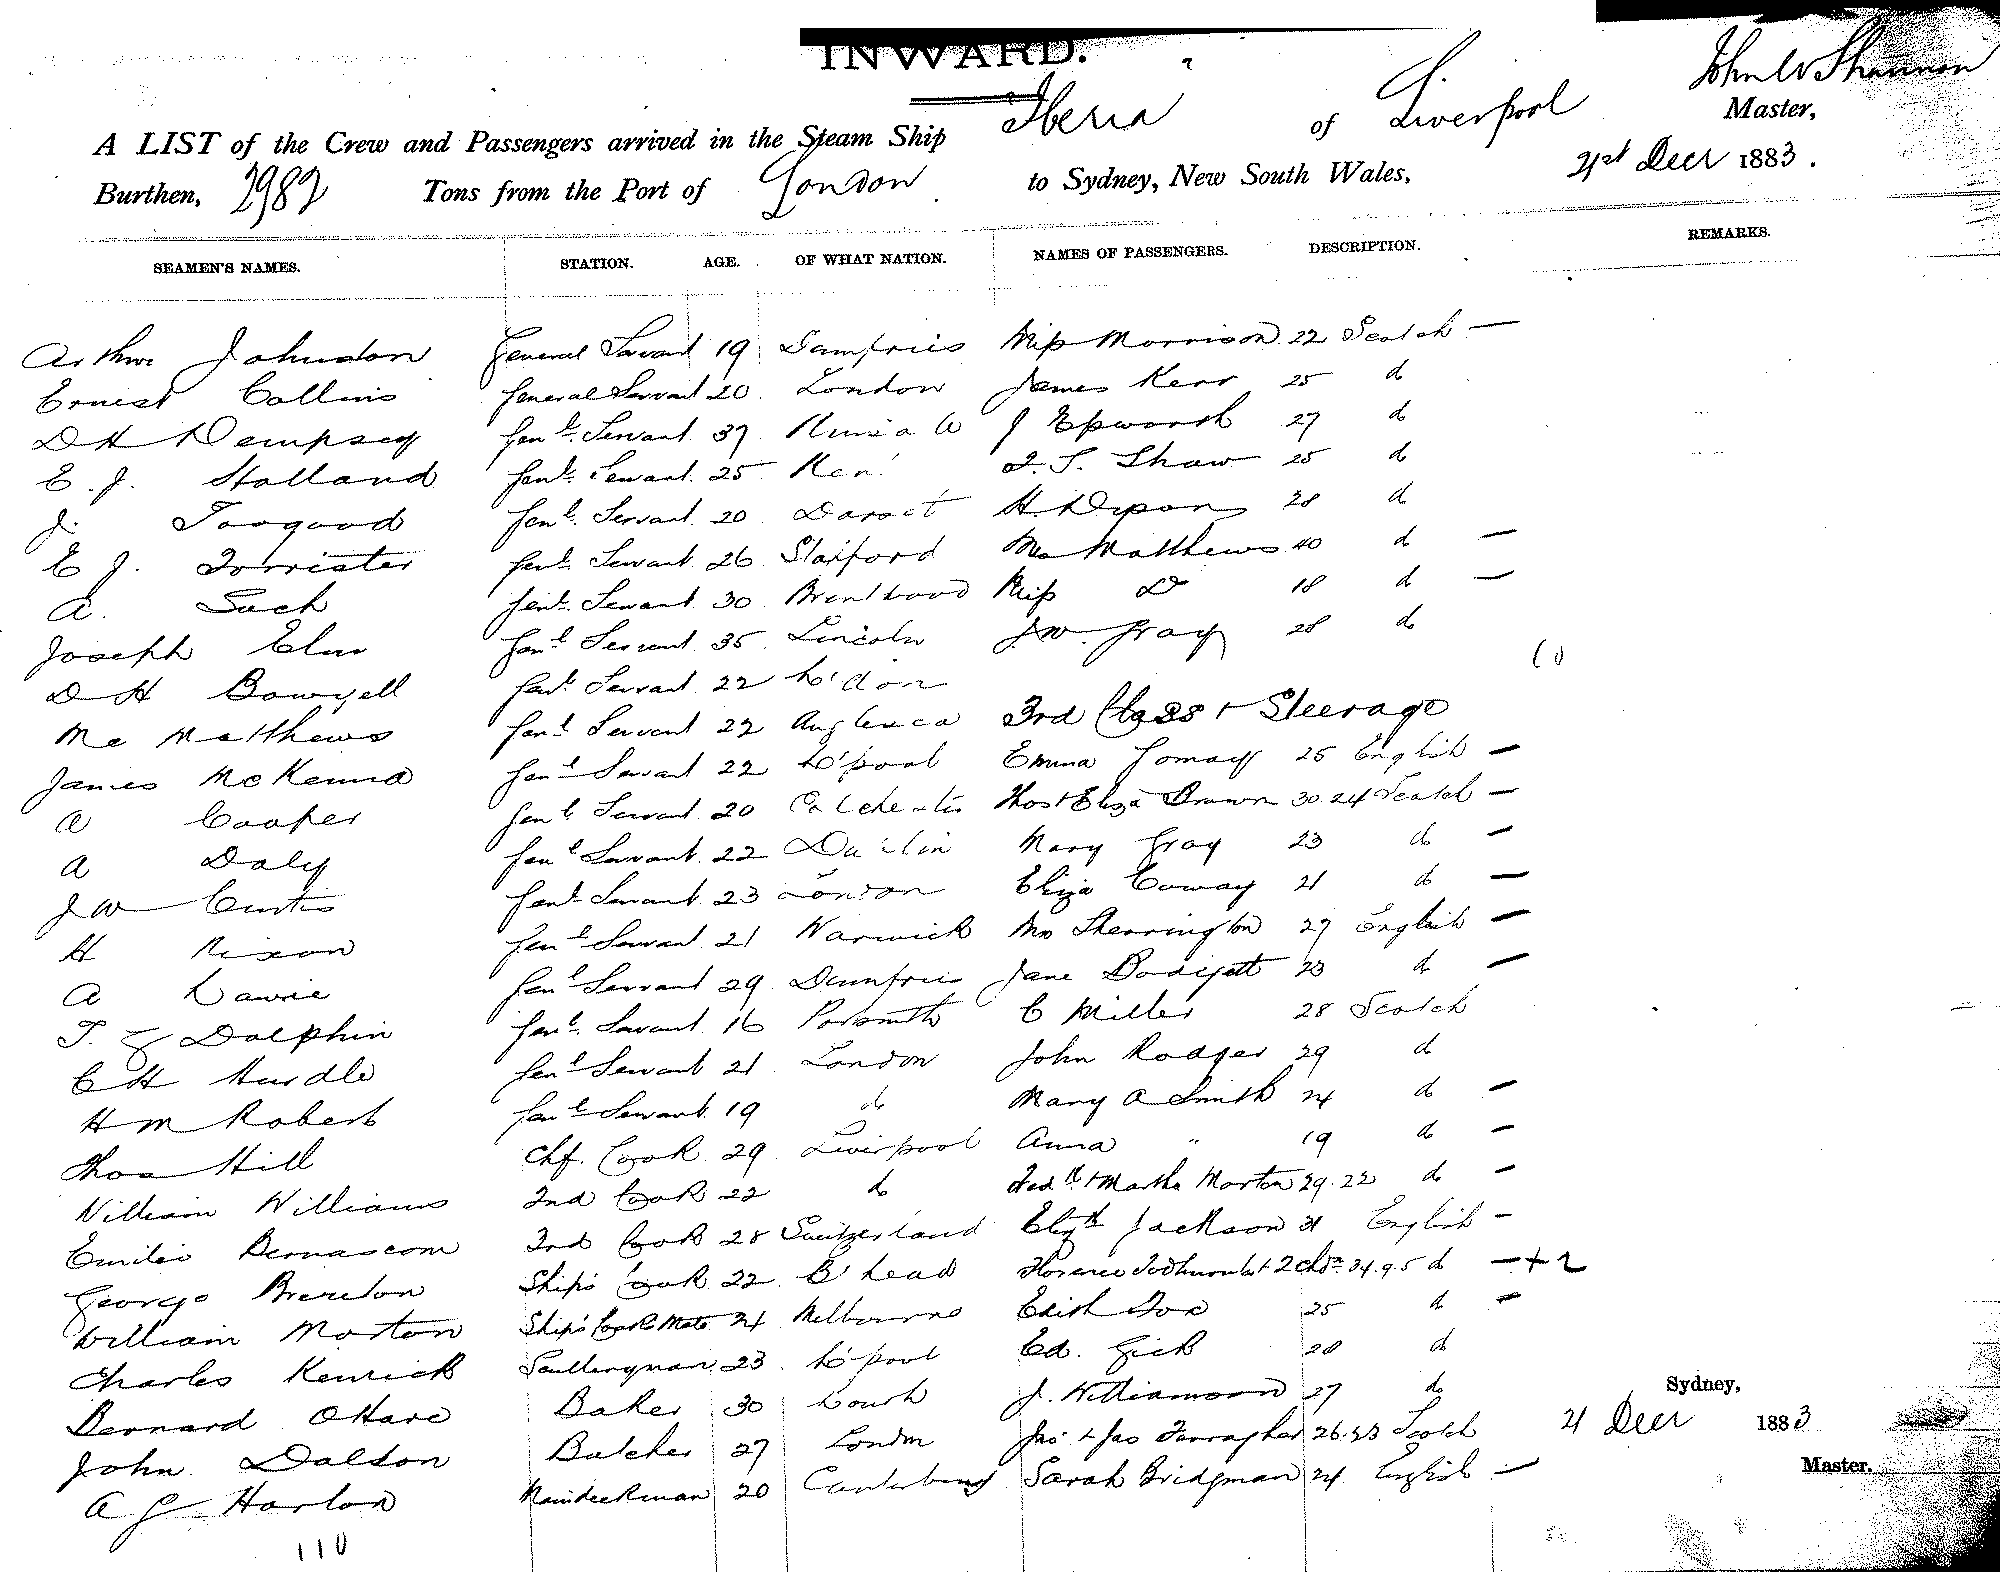 INWARD.
John W Shannon
A LIST of the Crew and Passengers arrived in the Steam Ship Iberia of Liverpool Master,
Burthen, 2982 Tons from the Port of London to Sydney, New South Wales, 21st Decr 1883.
SEAMEN'S NAMES. STATION. AGE. OF WHAT NATION. NAMES OF PASSENGERS. DESCRIPTION. REMARKS.
Arthur Johnston General Servant 19 Dumfries Miss Morrison 22 Scotch —
Ernest Collins General Servant 20 London James Kerr 25 do
D H Dempsey Genl. Servant 37 J Epworth 27 do
E. J. Holland Genl. Servant 25 Ken J. S. Shaw 25 do
J. Toogood Genl. Servant 20 Dorset H. Dixon 28 do
E J. Forrister Genl. Servant 26 Stafford Mrs Matthews 40 do —
A. Such Genl. Servant 30 Brentwood Miss Do 18 do —
Joseph Elm Genl Servant 35 Lincoln J.W. Gray 28 do
D H Bowyell Genl. Servant 22 L'don
Mc Matthews Genl Servant 22 3rd Class & Steerage
James McKenna Genl Servant 22 L'pool Emma 25 English —
A Cooper Genl Servant 20 Colchester Thos & Eliza Brown 30.24 Scotch —
A Daly Genl Servant 22 Dublin Mary Gray 23 do —
J W Curtis Genl Servant 23 London Eliza Conway 21 do —
H Nixon Genl Servant 21 Warwick Mrs Sherrington 27 English —
A Lawrie Genl Servant 29 Dumfries Jane 23 do —
T. Dolphin Genl. Servant 16 Portsmth C Miller 28 Scotch
C H Hurdle Genl Servant 21 London John Rodger 29 do
H M Robert Genl Servant 19 do Mary A Smith 24 do —
Thos Hill Chf. Cook 29 Liverpool Anna " 19 do —
William Williams 2nd Cook 22 do Fredk & Martha Morton 29.22 do —
Emilio Bernascom 3rd Cook 28 Switzerland Elizth Jackson 31 English —
George Brereton Ships Cook 22 B'head Florence & 2 Chdn 34.9.5 do — + 2
William Morton Ships Cooks Mate 24 Melbourne Edith Fox 25 do —
Charles Kenrick Sculleryman 23 L'pool Ed. Gick 28 do
Bernard OHare Baker 30 Louth J. Williamson 27 do
John Dalton Butcher 27 London Jas & Jas Farragher 26.23 Scotch
A G Horton Maindeckman 20 Canterbury Sarah Bridgman 24 English —
110
Sydney,
21 Decr 1883
Master.